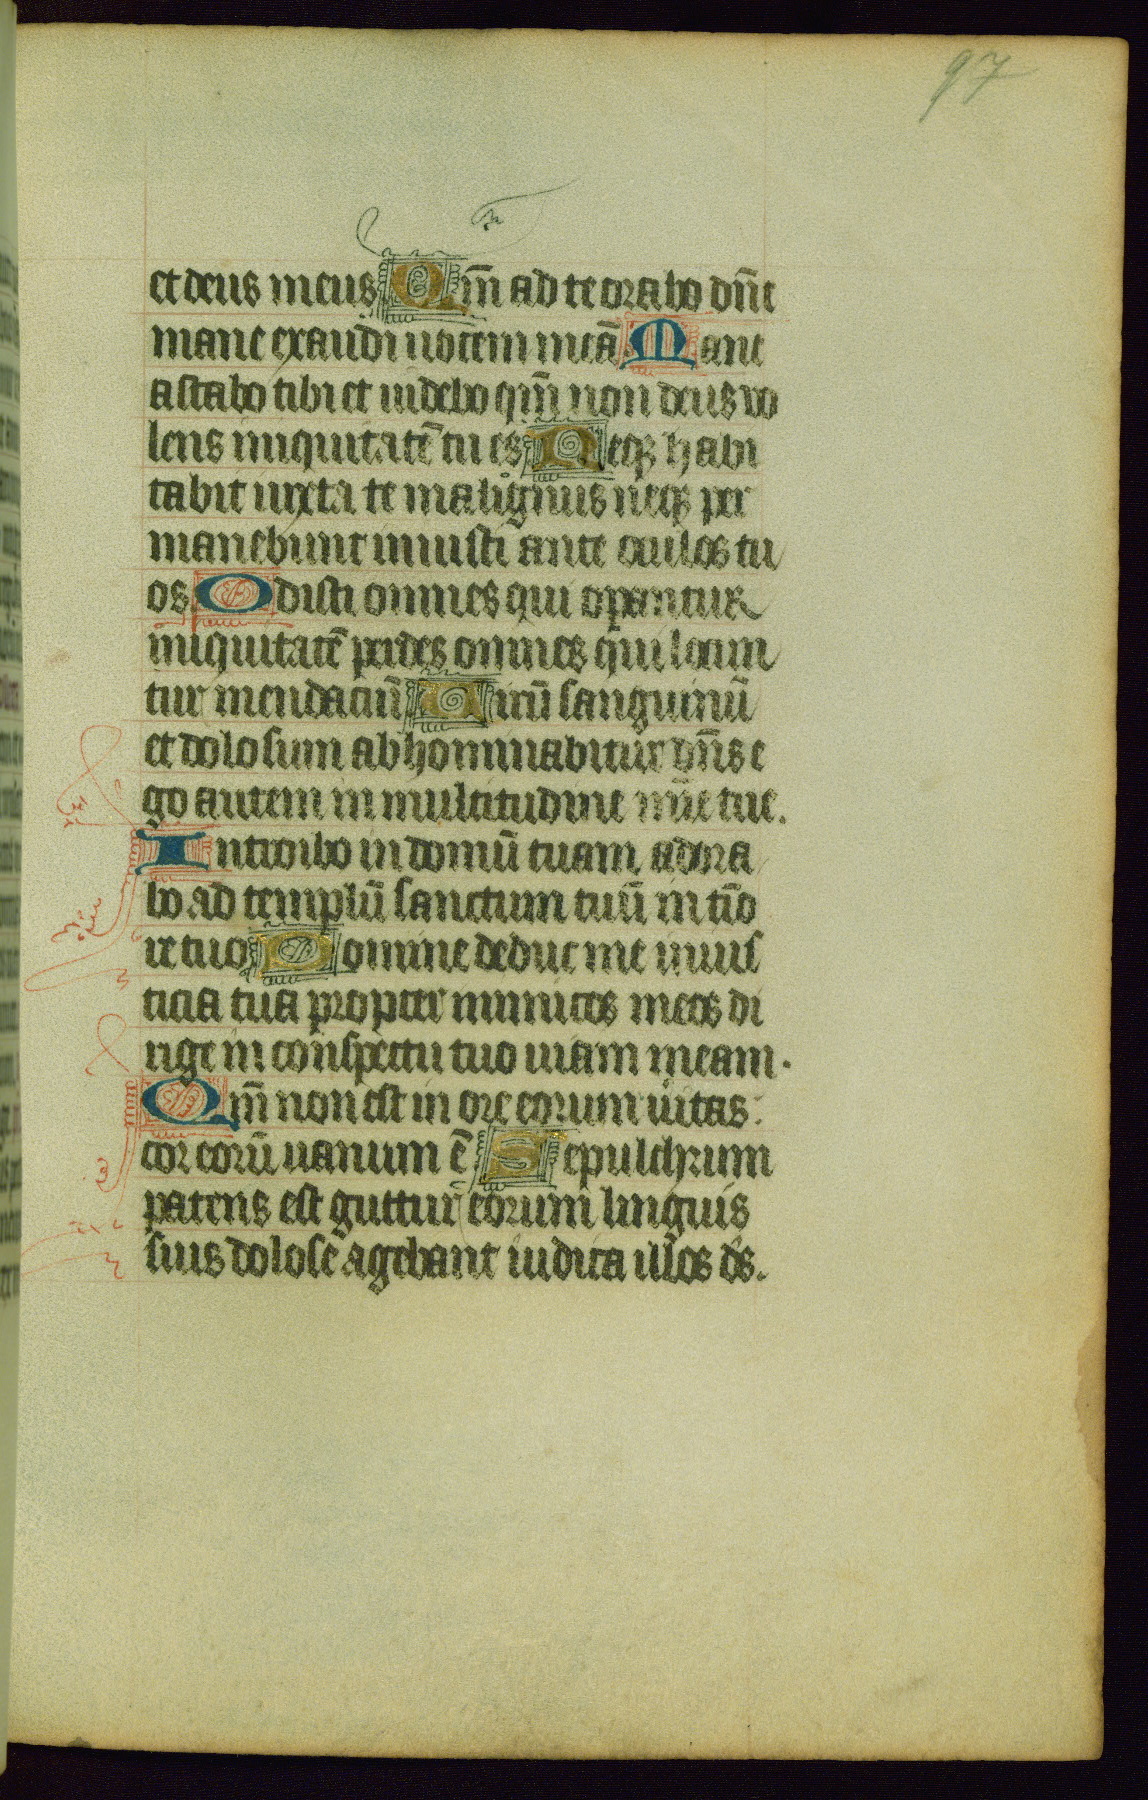 97
et deus meus Qm̄ ad te orabo dn̄e
mane exaudi uocem meā Mane
astabo tibi et uidebo qm̄ non deus vo
lens iniquitatē tu es Neqꝫ habi
tabit iuxta te malignus neqꝫ per
manebunt iniusti ante oculos tu
os Odisti omnes qui oꝑantur
iniquitatē perdes omnes qui locun
tur mendaciū Uirū sanguinū
et dolosum abhominabitur dn̄s e
go autem in multitudine mīe tue.
Introibo in domū tuam adora
bo ad templū sanctum tuū in tīo
re tuo Domine deduc me in ius
ticia tua propter inimicos meos di
rige in conspectu tuo uiam meam.
Qm̄ non est in ore eorum ūitas:
cor eorū uanum ē Sepulchrum
patens est guttur eorum linguis
suis dolose agebant iudica illos ds̄.